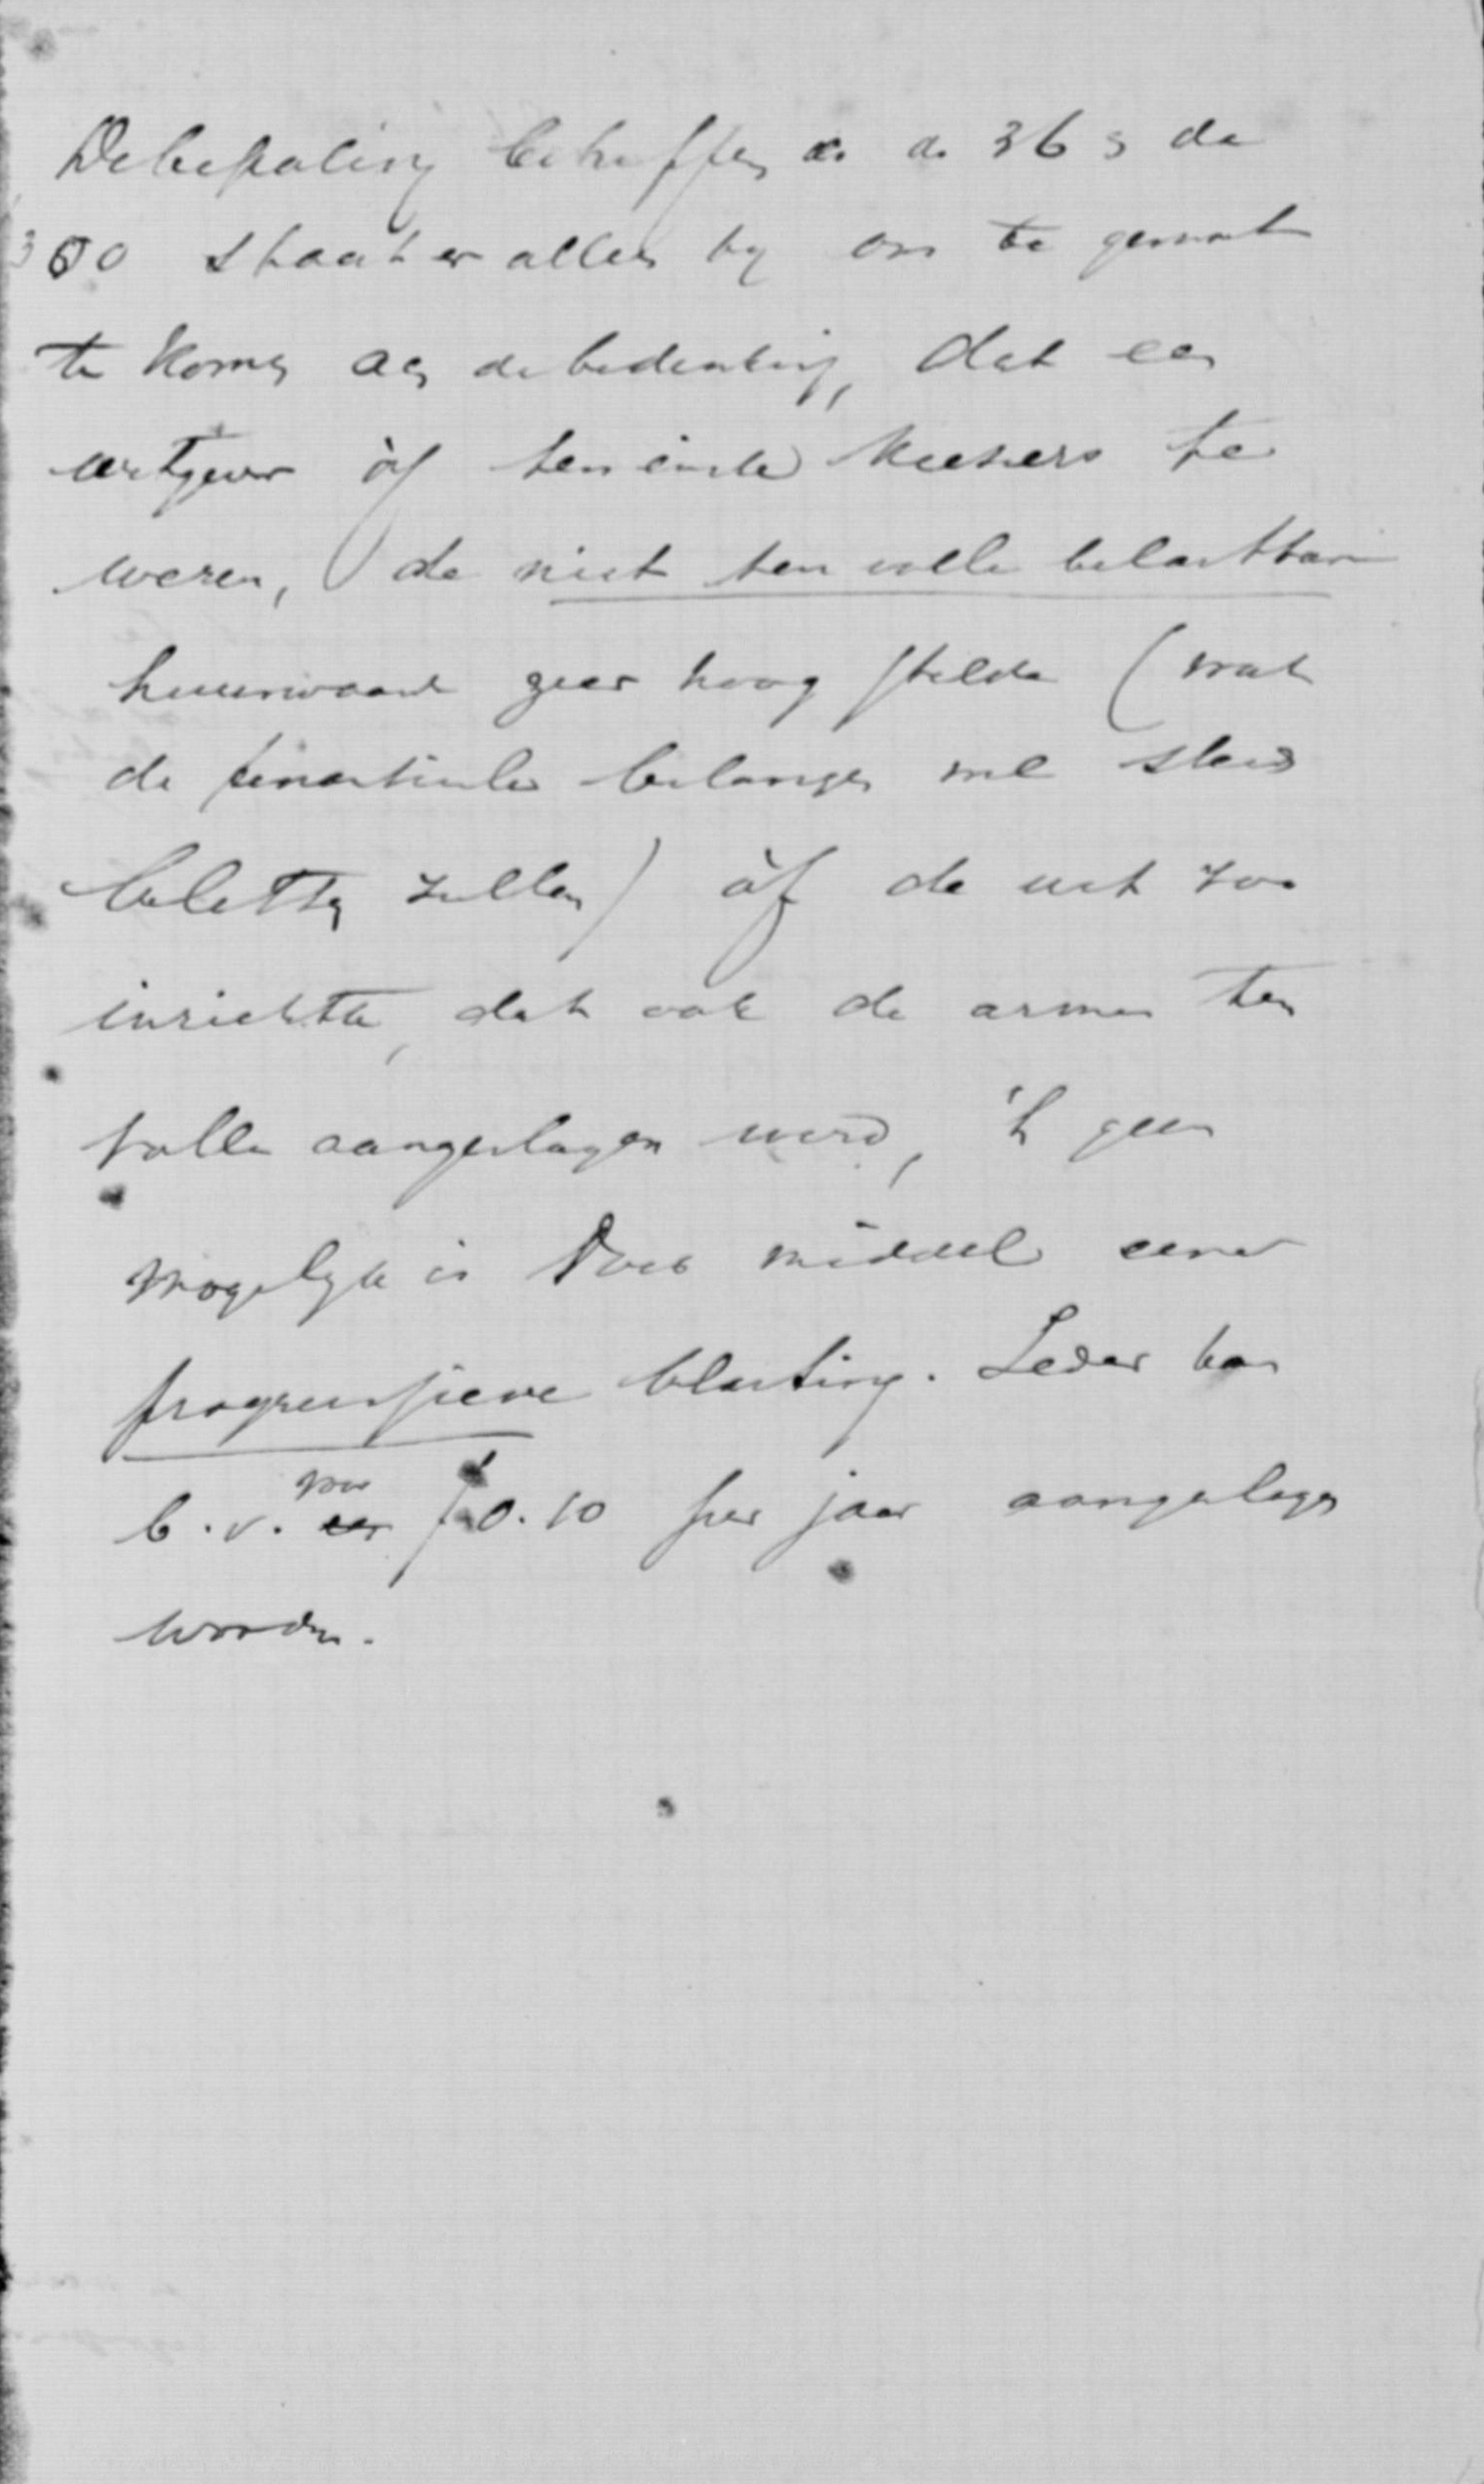 De bepaling betreffen de de 365 de
360 staat er alleen by om te gemoet
te komen aan de bedenking, dat een
wetgever òf ten einde kiezers te
weren, de niet ten volle belastbare
huurwaarde zeer hoog stelde (wat
de financiëele belangen wel steeds
beletten zullen) òf de wet zoo
inrichtte, dat ook de armen ten
volle aangeslagen werd, 't geen
mogelyk is door middel eener
progressieve belasting. Ieder kan
b.v. voor f 0.10 per jaar aangeslagen
worden.